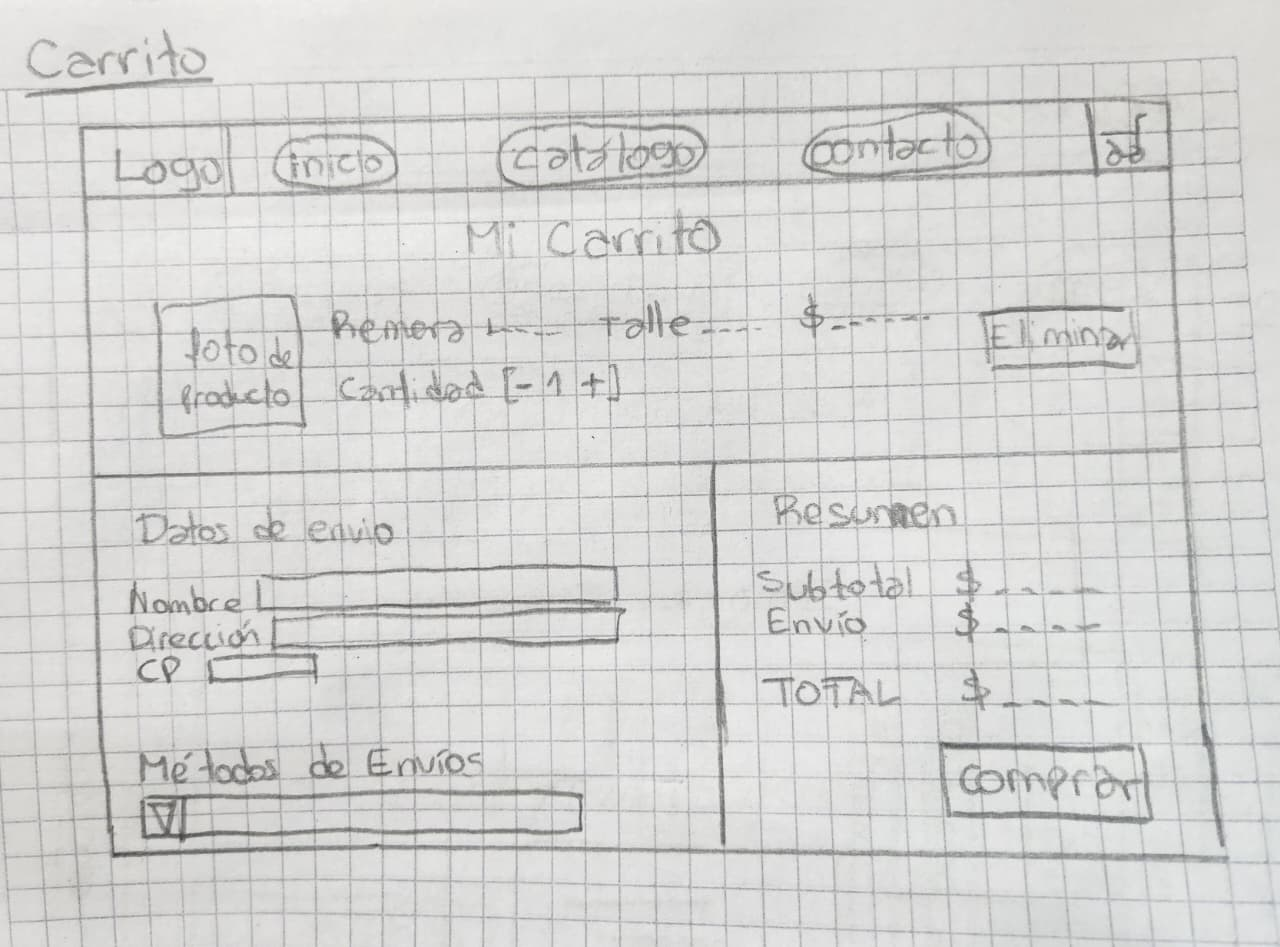 Carrito
Logo inicio catálogo contacto
Mi Carrito
foto de producto
Remera ---- Talle ---- $------ Eliminar
Cantidad [- 1 +]
Datos de envio
Nombre
Dirección
CP
Métodos de Envíos
Resumen
Subtotal $----
Envío $----
TOTAL $----
Comprar